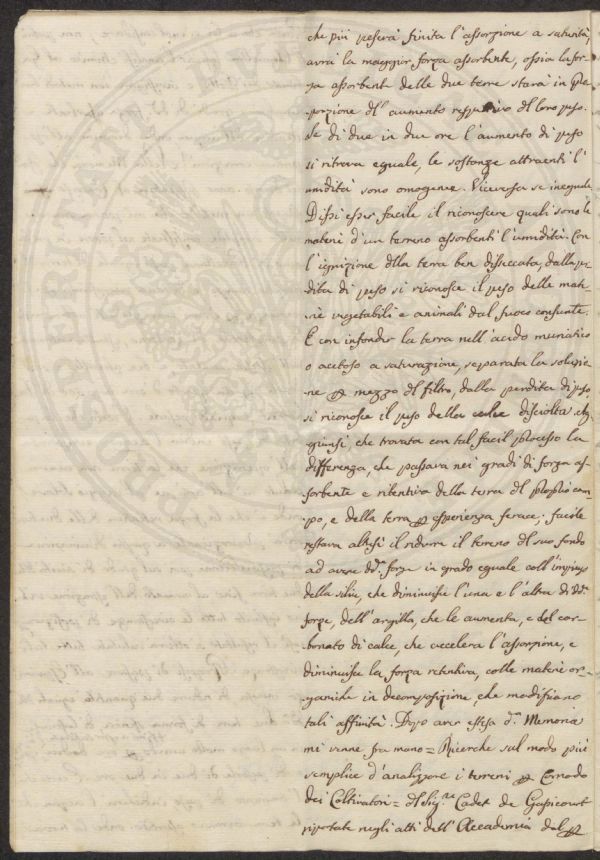 che più peserà finita l'assorzione a saturità,
avrà la maggior forza assorbente, ossia la for-
za assorbente delle due terre starà in pro-
porzione dl' aumento respettivo dl loro peso.
Se di due in due ore l'aumento di peso
si ritrova eguale, le sostanze attraenti l'
umidità sono omogenee. Viceversa se ineguale.
Dissi esser facile il riconoscere quali sono le
materie d'un terreno assorbenti l'umidità. Con
l'ignizione dlla terra ben disseccata, dalla per-
dita di peso si riconosce il peso delle mate-
rie vegetabili e animali dal fuoco consunte.
E con infonder la terra nell'acido muriatico
o acetoso a saturazione, separata la soluzio-
ne p mezzo dl filtro, dalla perdita di peso
si riconosce il peso della calce disciolta. Ag-
giunsi, che trovata con tal facil processo la
differenza, che passava nei gradi di forza as-
sorbente e ritentiva della terra dl proprio cam-
po, e della terra p esperienza ferace; facile
restava altresì il ridurre il terreno dl suo fondo
ad avere dd. forze in grado eguale coll'impiego
della silice, che diminuisce l'una e l'altra di dd.
forze, dell'argilla, che le aumenta, e del car-
bonato di calce, che accelera l'assorzione, e
diminuisce la forza retentiva, colle materie or-
ganiche in decomposizione, che modificano
tali affinità. Dopo aver estesa d.a Memoria
mi venne fra mano = Ricerche sul modo più
semplice d'analizzare i terreni p Comodo
dei Coltivatori = dl Sig.re Cadet de Gassicourt
riportate negli atti dell'Accademia dal p